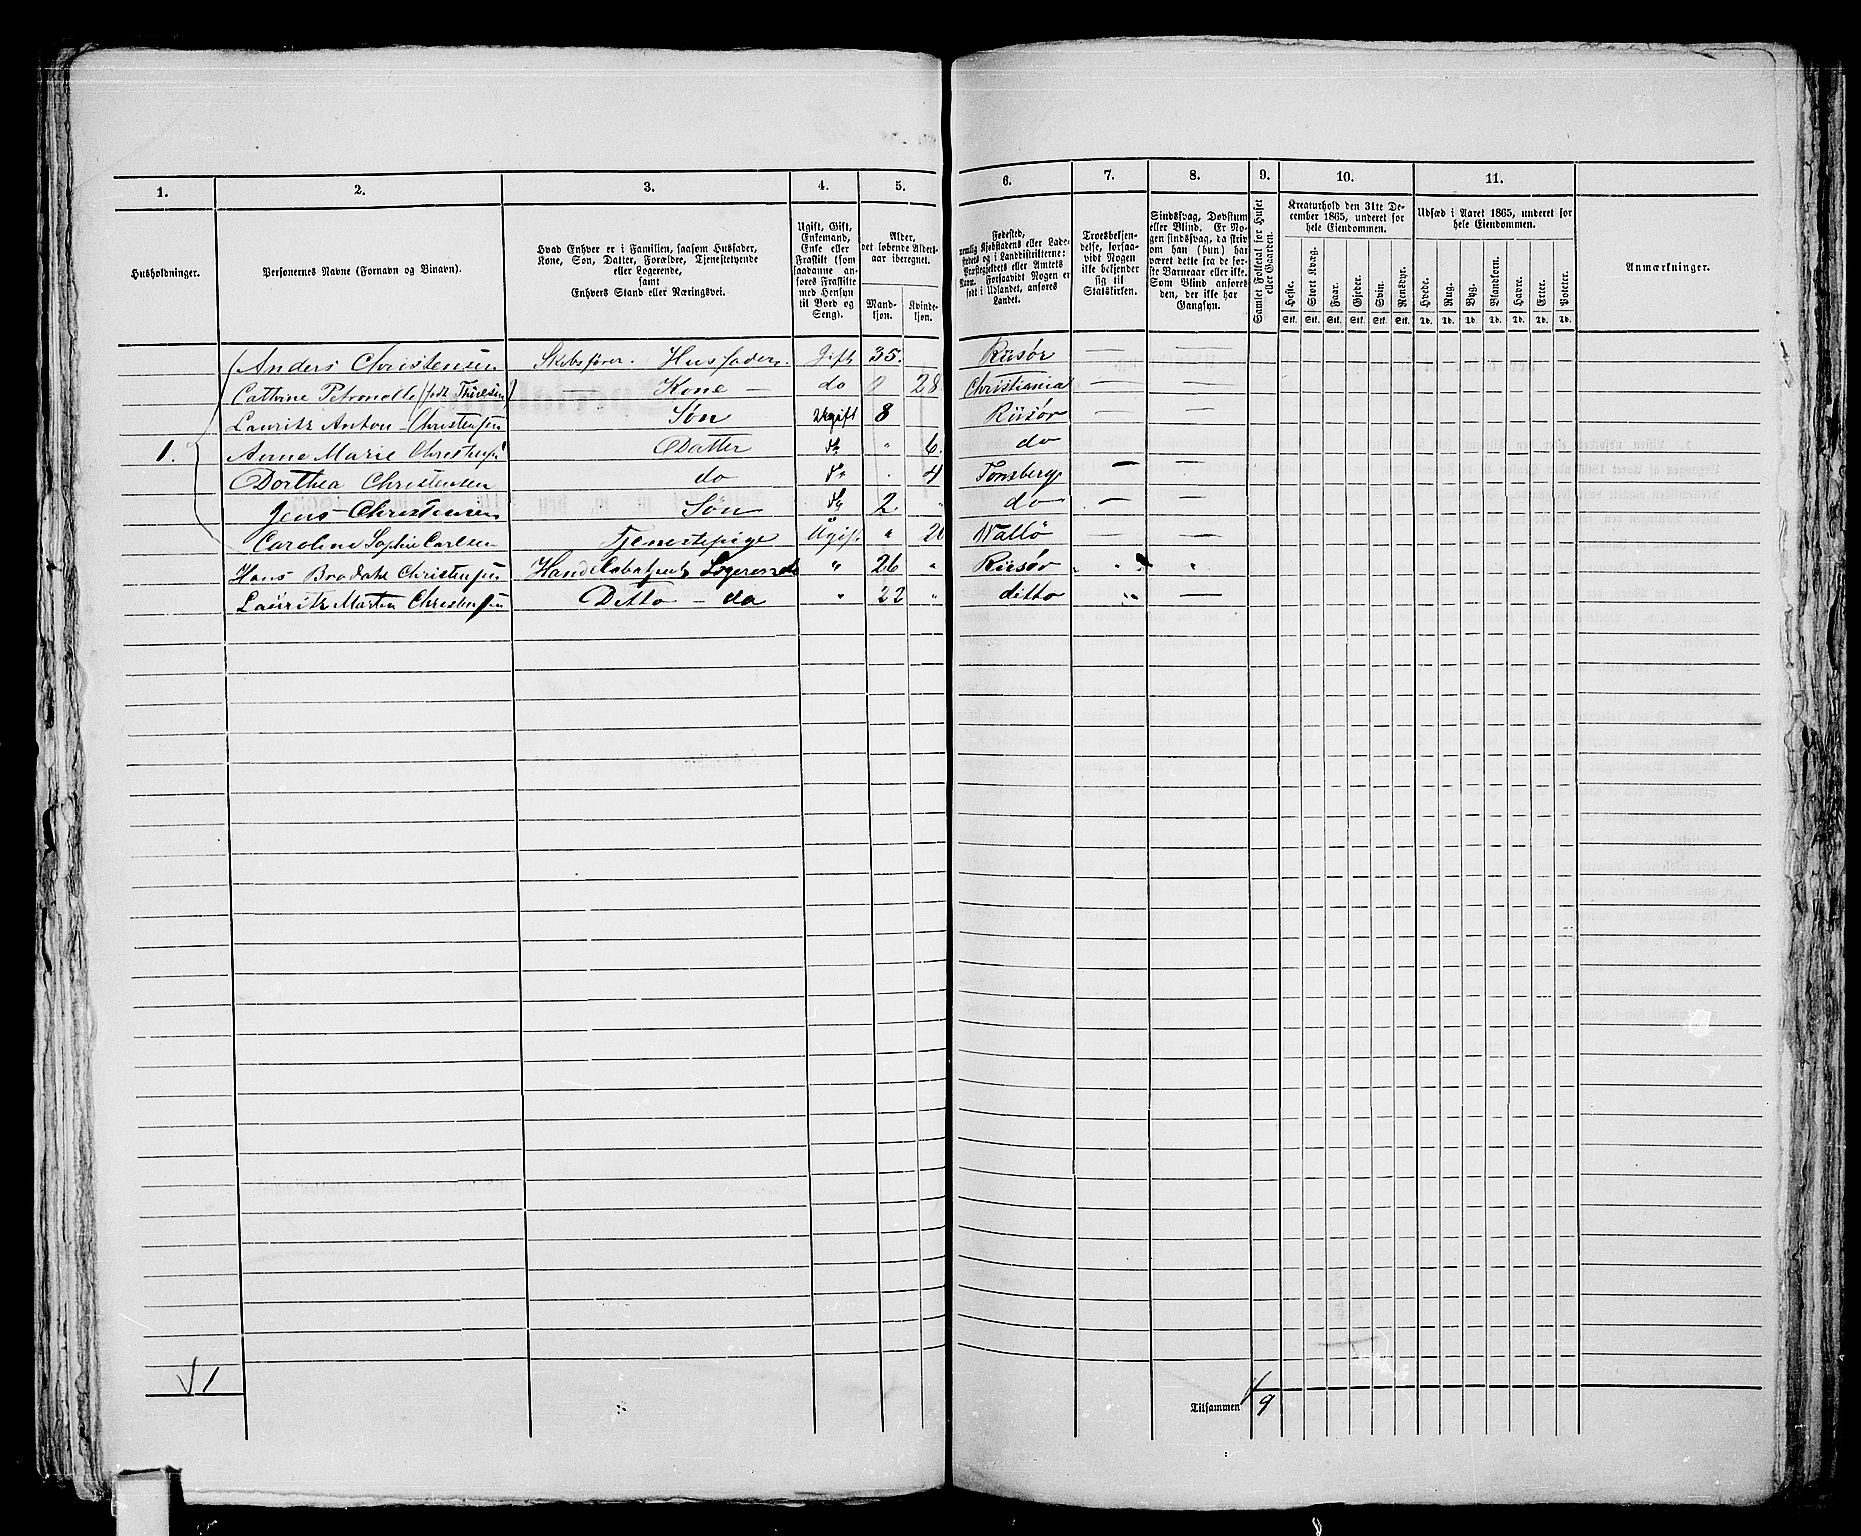 1. 2. 3. 4. 5. 6. 7. 8. 9. 10. 11.
Husholdninger.
Personernes Navne (Fornavn og Binavn).
Hvad Enhver er i Familien, saasom Husfader,
Kone, Søn, Datter, Forældre, Tjenestetyende
eller Logerende,
samt
Enhvers Stand eller Næringsvei.
Ugift, Gift,
Enkemand,
Enke eller
Fraskilt (som
saadanne an-
føres Fraskilte
med Hensyn
til Bord og
Seng).
Alder,
det løbende Alders-
aar iberegnet.
Mand-
kjøn.
Kvinde-
kjøn.
Fødested,
nemlig Kjøbstadens eller Lade-
stedets og i Landdistrikterne:
Præstegjeldets eller Amtets
Navn. Forsaavidt Nogen er
født i Udlandet, anføres
Landet.
Troesbekjen-
delse, forsaa-
vidt Nogen
ikke bekjender
sig til
Statskirken.
Sindssvag, Døvstum
eller Blind. Er No-
gen sindssvag, da skriv
om han (hun) har
været dette fra de før-
ste Barneaar eller ikke.
Som Blind anføres
den, der ikke har
Gangsyn.
Samlet Folketal for Huset
eller Gaarden.
Kreaturhold den 31te De-
cember 1865, underet for
hele Eiendommen.
Heste. Stort Kvæg. Faar. Gjeder. Svin. Rensdyr.
Stk. Stk. Stk. Stk. Stk. Stk.
Udsæd i Aaret 1865, underet for
hele Eiendommen.
Hvede. Rug. Byg. Blandkorn. Havre. Erter. Poteter.
Td. Td. Td. Td. Td. Td. Td.
Anmærkninger.
Anders Christensen Skibsfører. Husfader. Gift 35. Riisør — —
Cathrine Petronelle (født Thiresen) — Kone — do " 28 Christiania — —
Lauritz Anton Christensen Søn Ugift 8 Riisør — —
1. Anne Marie Christensen Datter do " 6. do
Dorthea Christensen do do . 4 Tønsberg — —
Jens Christensen Søn do 2 " do — —
Caroline Sophie Carlsen Tjenestepige Ugift " 20 Vallø — —
Hans Brodahl Christensen Handelsbetjent Logerende " 26 " Riisør " " "
Lauritz Marten Christensen Ditto — do " 22 " ditto " —
1
Tilsammen 9